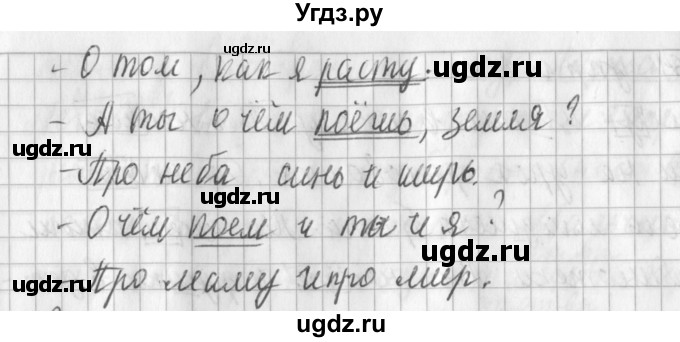 Угдз.ру
- О том, как я расту.
- А ты о чём поёшь, земля?
- Про неба синь и ширь.
- О чём поем и ты и я?
- Про маму и про мир.
ugdz.ru
ugdz.ru
ugdz.ru
ugdz.ru
ugdz.ru
ugdz.ru
ugdz.ru
ugdz.ru
ugdz.ru
ugdz.ru